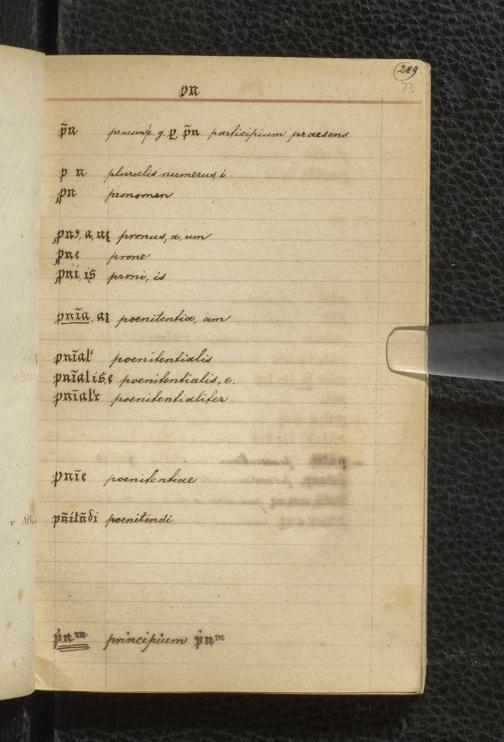 289
33
pn
p̄n praesens, e. g. ꝑ p̄n participium praesens
p n pluralis numerus, i
ꝓn pronomen
ꝓnꝰ, a, uꝫ pronus, a, um
ꝓne prone
ꝓni, is proni, is
pnīa, aꝫ poenitentia, am
pnīal' poenitentialis
pnīalis, e poenitentialis, e.
pnīal'r poenitentialiter
pnīe poenitentiae
pn̄itn̄di poenitendi
pnᵐ principium pnᵐ